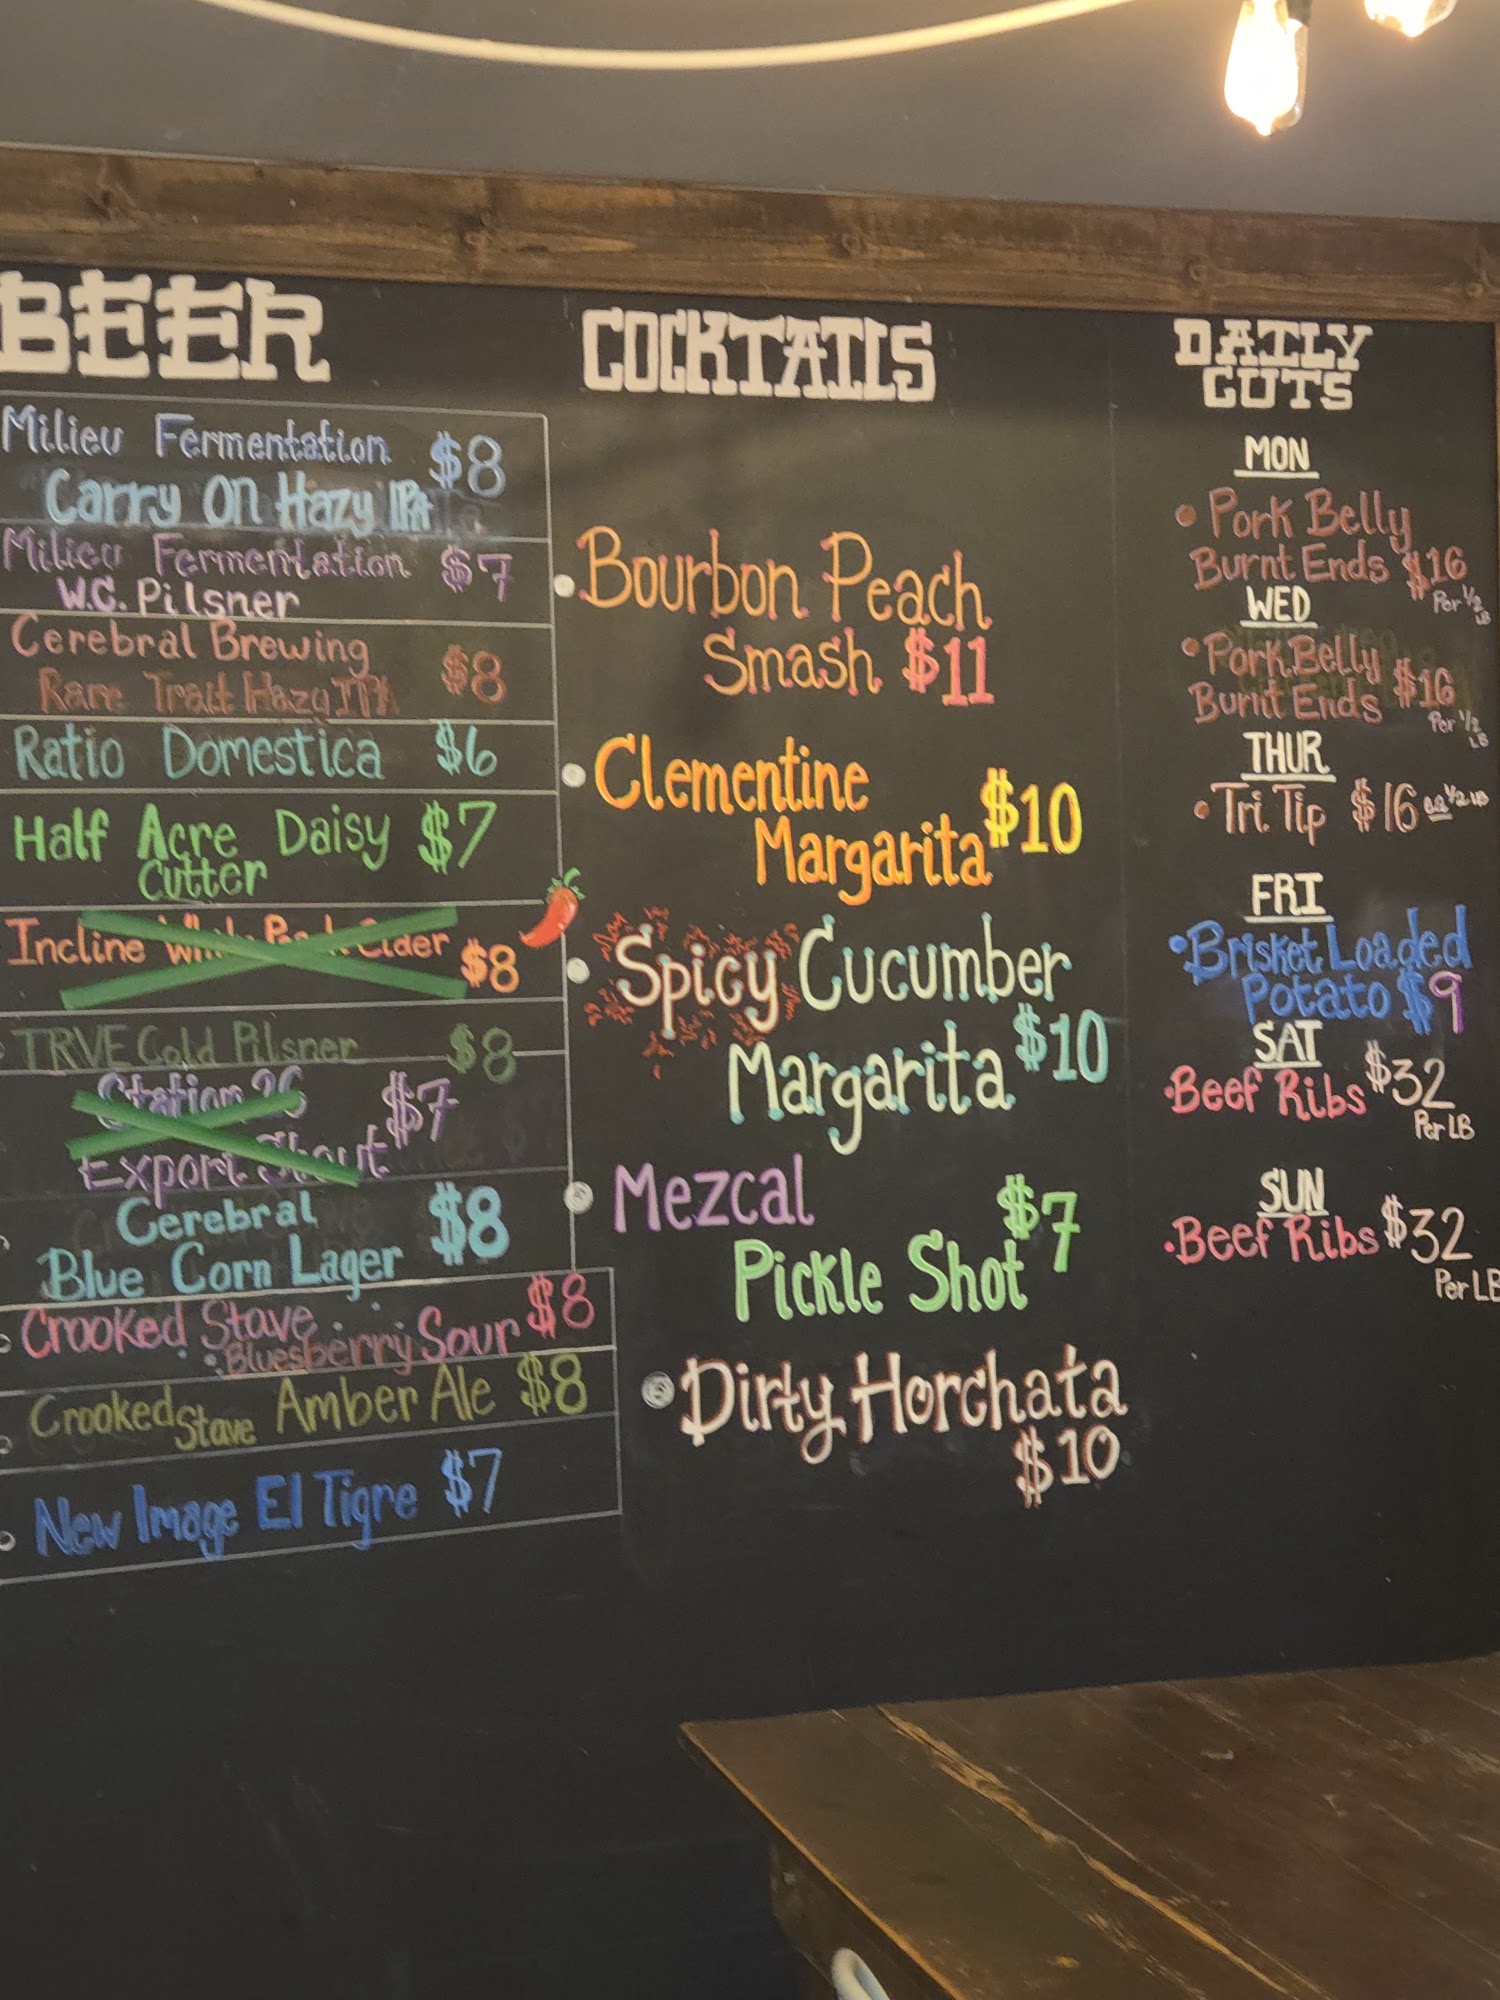 BEER
Milieu Fermentation $8
Carry On Hazy IPA
Milieu Fermentation $7
W.C. Pilsner
Cerebral Brewing
Rare Trait Hazy IPA $8
Ratio Domestica $6
Half Acre Daisy $7
Cutter
Incline Cider $8
TRVE Cold Pilsner $8
Station 26 $7
Export Stout
Cerebral $8
Blue Corn Lager
Crooked Stave $8
Bluesberry Sour
Crooked Stave Amber Ale $8
New Image El Tigre $7
COCKTAILS
Bourbon Peach
Smash $11
Clementine
Margarita $10
Spicy Cucumber
Margarita $10
Mezcal
Pickle Shot $7
Dirty Horchata
$10
DAILY
CUTS
MON
• Pork Belly
Burnt Ends $16
Per 1/2
LB
WED
• Pork Belly
Burnt Ends $16
Per 1/2
LB
THUR
• Tri Tip $16 ea 1/2 LB
FRI
• Brisket Loaded
Potato $9
SAT
• Beef Ribs $32
Per LB
SUN
• Beef Ribs $32
Per LB